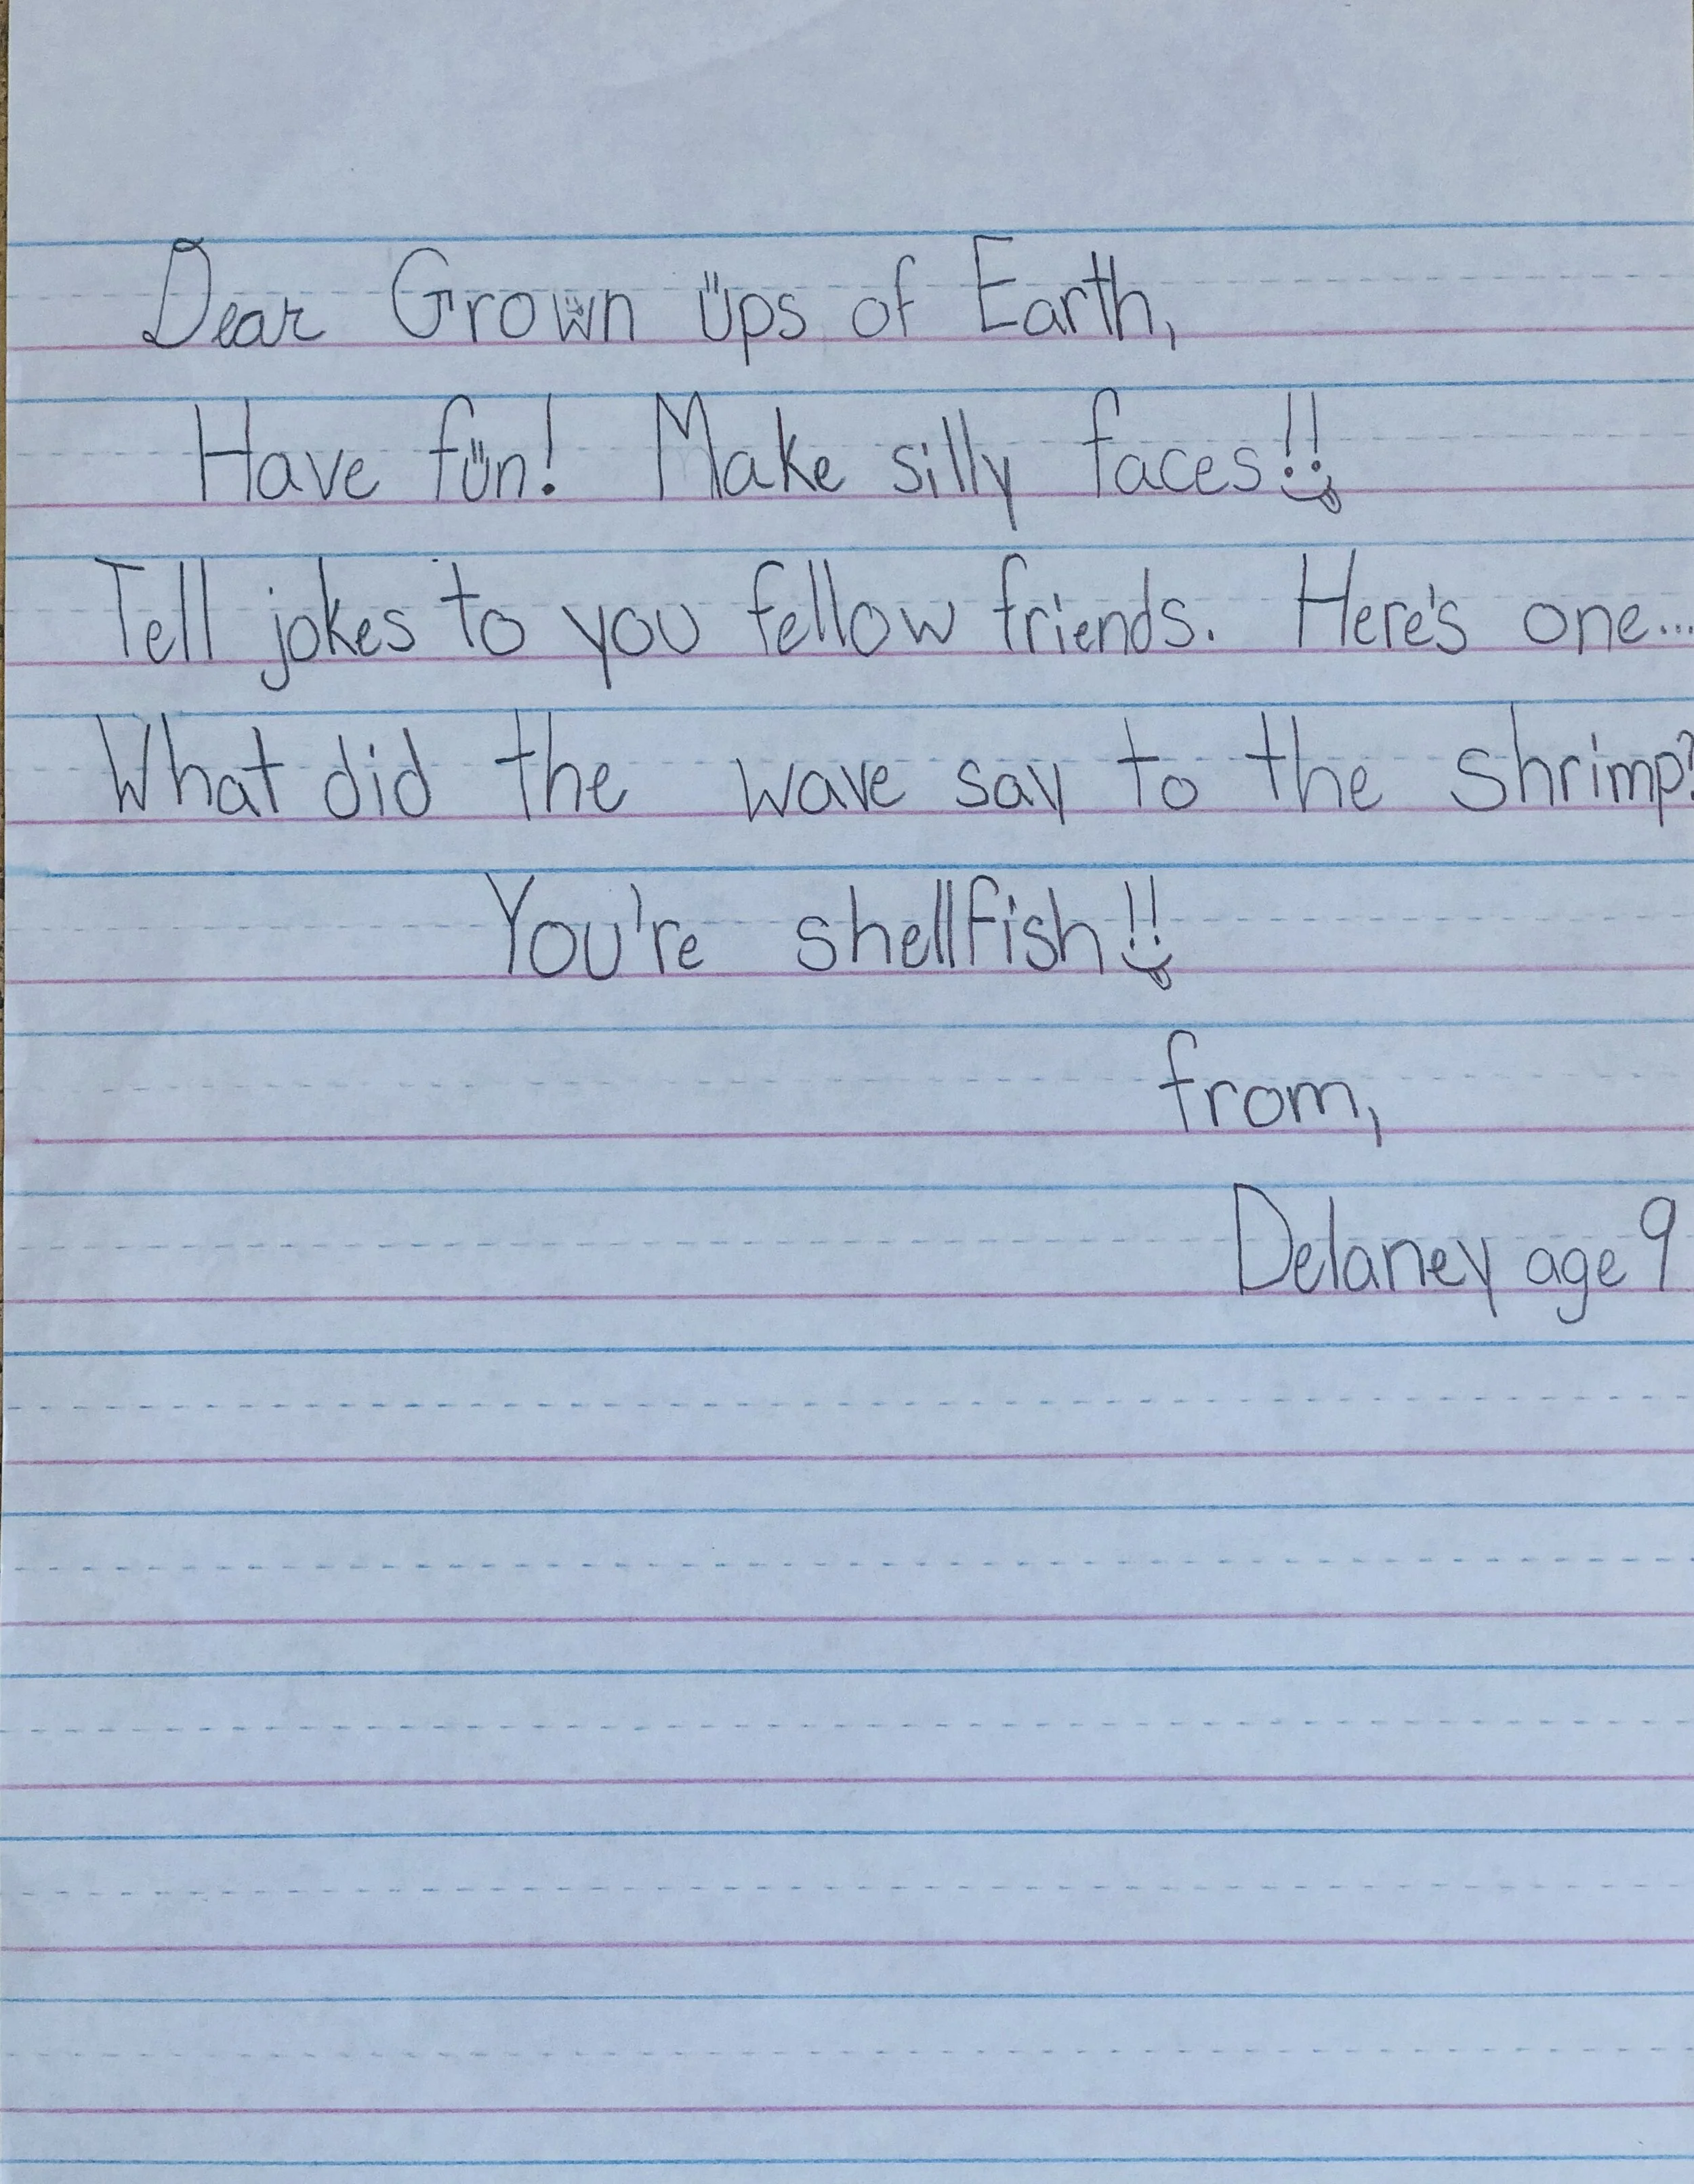 Dear Grown Üps of Earth,
Have fün! Make silly faces!!
Tell jokes to you fellow friends. Here's one...
What did the wave say to the shrimp?
You're shellfish!!
from,
Delaney age 9